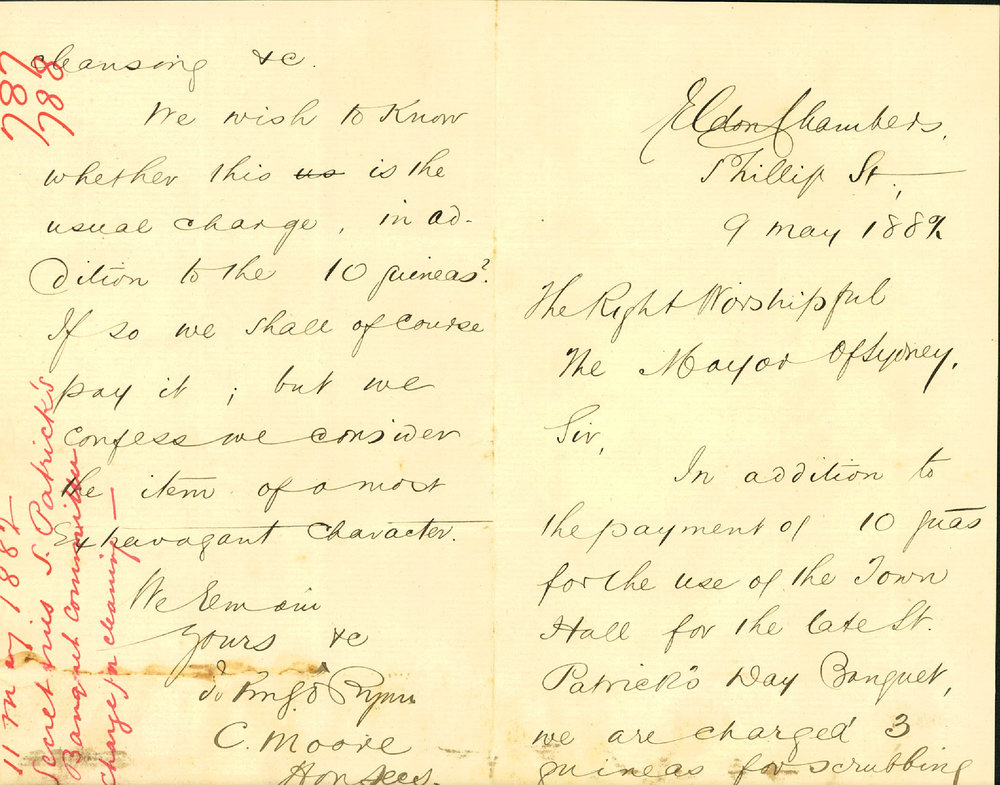 Eldon Chambers,
Phillip St,
9 May 1882
The Right Worshipful
The Mayor of Sydney.
Sir,
In addition to
the payment of 10 guas
for the use of the Town
Hall for the late St.
Patrick's Day Banquet,
we are charged 3
guineas for scrubbing
cleansing &c.
We wish to know
whether this us is the
usual charge, in ad-
dition to the 10 guineas?
If so we shall of course
pay it; but we
confess we consider
the item of a most
Extravagant character.
We remain
Yours &c
C. Moore
Hon Secs.
787
788
11 May 1882
Secretaries S. Patrick's
Banquet Committee
charge for cleaning —